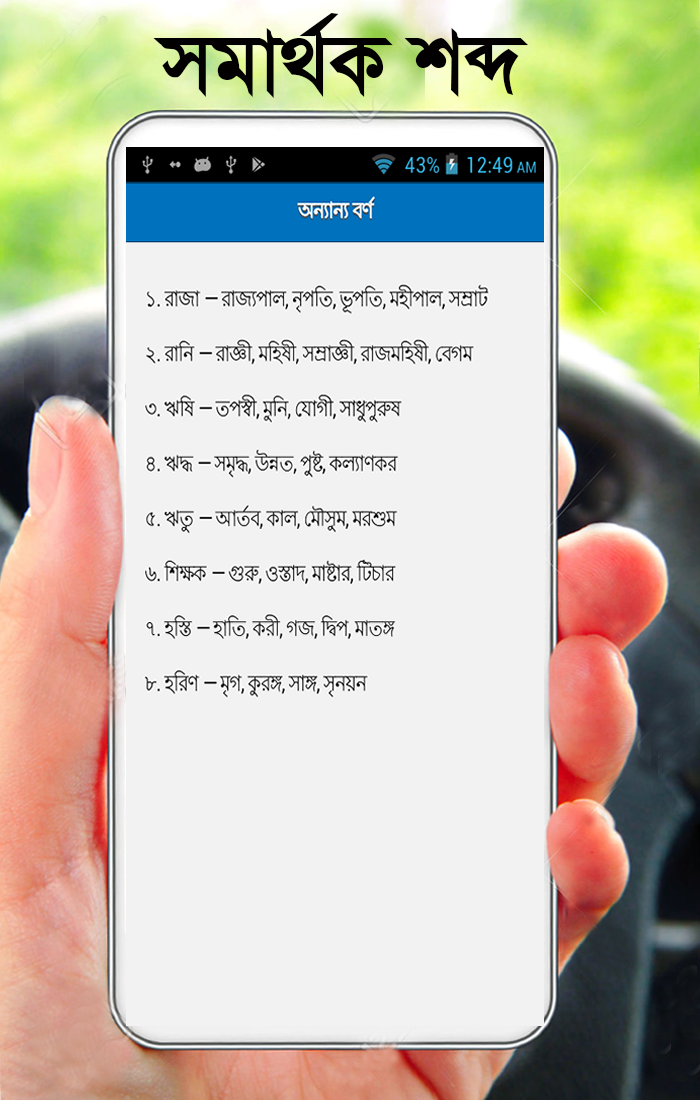 সমার্থক শব্দ
43% 12:49 AM
অন্যান্য বর্ণ
১. রাজা – রাজ্যপাল, নৃপতি, ভূপতি, মহীপাল, সম্রাট
২. রানি – রাজ্ঞী, মহিষী, সম্রাজ্ঞী, রাজমহিষী, বেগম
৩. ঋষি – তপস্বী, মুনি, যোগী, সাধুপুরুষ
৪. ঋদ্ধ – সমৃদ্ধ, উন্নত, পুষ্ট, কল্যাণকর
৫. ঋতু – আর্তব, কাল, মৌসুম, মরশুম
৬. শিক্ষক – গুরু, ওস্তাদ, মাষ্টার, টিচার
৭. হস্তি – হাতি, করী, গজ, দ্বিপ, মাতঙ্গ
৮. হরিণ – মৃগ, কুরঙ্গ, সাঙ্গ, সৃনয়ন